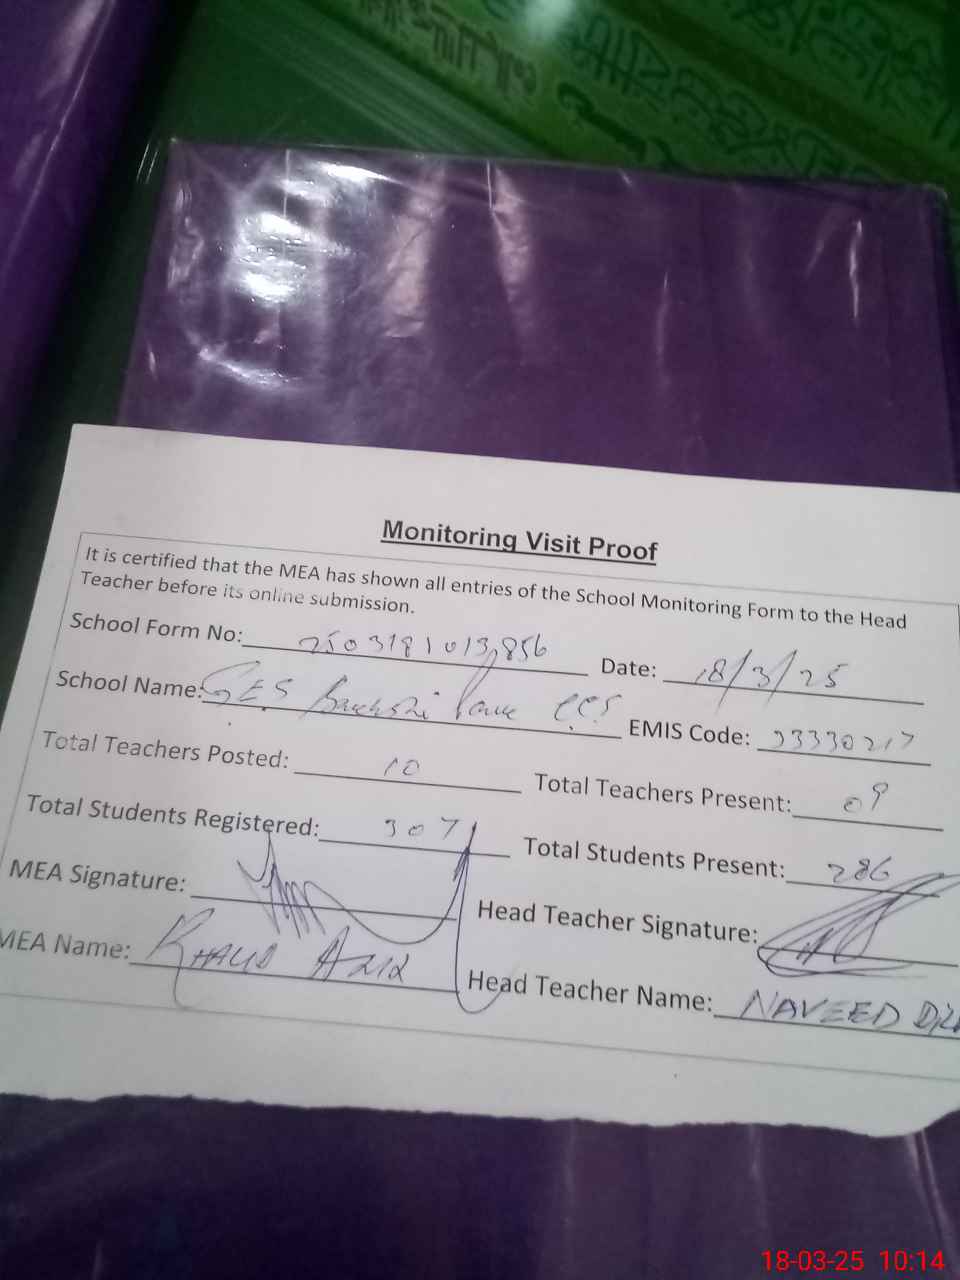 Monitoring Visit Proof
It is certified that the MEA has shown all entries of the School Monitoring Form to the Head
Teacher before its online submission.
School Form No: 2503181013856 Date: 18/3/25
School Name: GES EMIS Code: 33330217
Total Teachers Posted: 10 Total Teachers Present: 09
Total Students Registered: 307 Total Students Present: 286
MEA Signature: Head Teacher Signature:
MEA Name: KHALID AZIZ Head Teacher Name: NAVEED
18-03-25 10:14